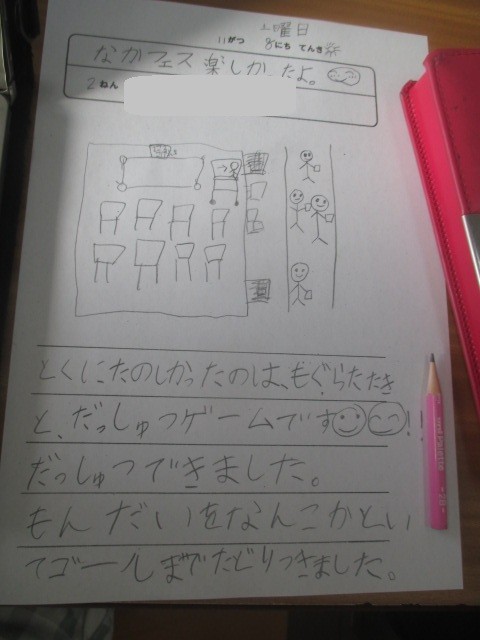 土曜日
11がつ 8にち てんき
なかフェス楽しかったよ。
2ねん
とくにたのしかったのは、もぐらたたき
と、だっしゅつゲームです!!
だっしゅつできました。
もんだいをなんこかとい
てゴールまでたどりつきました。